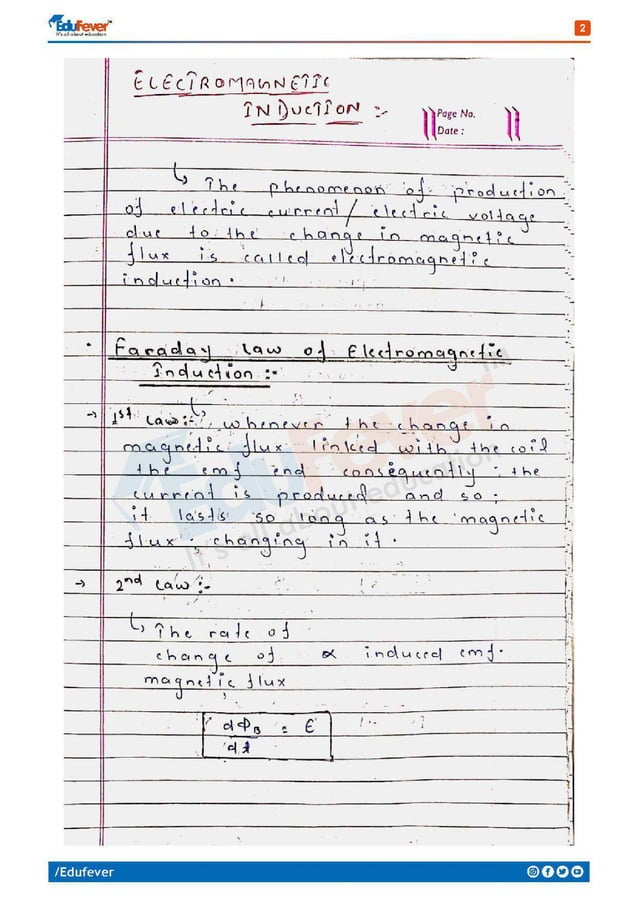 EduFever™
It's all about education
2
ELECTROMAGNETIC
INDUCTION :-
Page No.
Date :
↳ The phenomenon of production
of electric current / electric voltage
due to the change in magnetic
flux is called electromagnetic
induction.
• Faraday Law of Electromagnetic
Induction :-
→ 1st Law :- ↳ Whenever the change in
magnetic flux linked with the coil
the emf end consequently ; the
current is produced and so ;
it lasts so long as the magnetic
flux . changing in it .
→ 2nd Law :-
↳ The rate of
change of ∝ induced emf.
magnetic flux
dΦB = ε
dt
EduFever™
It's all about education
/Edufever